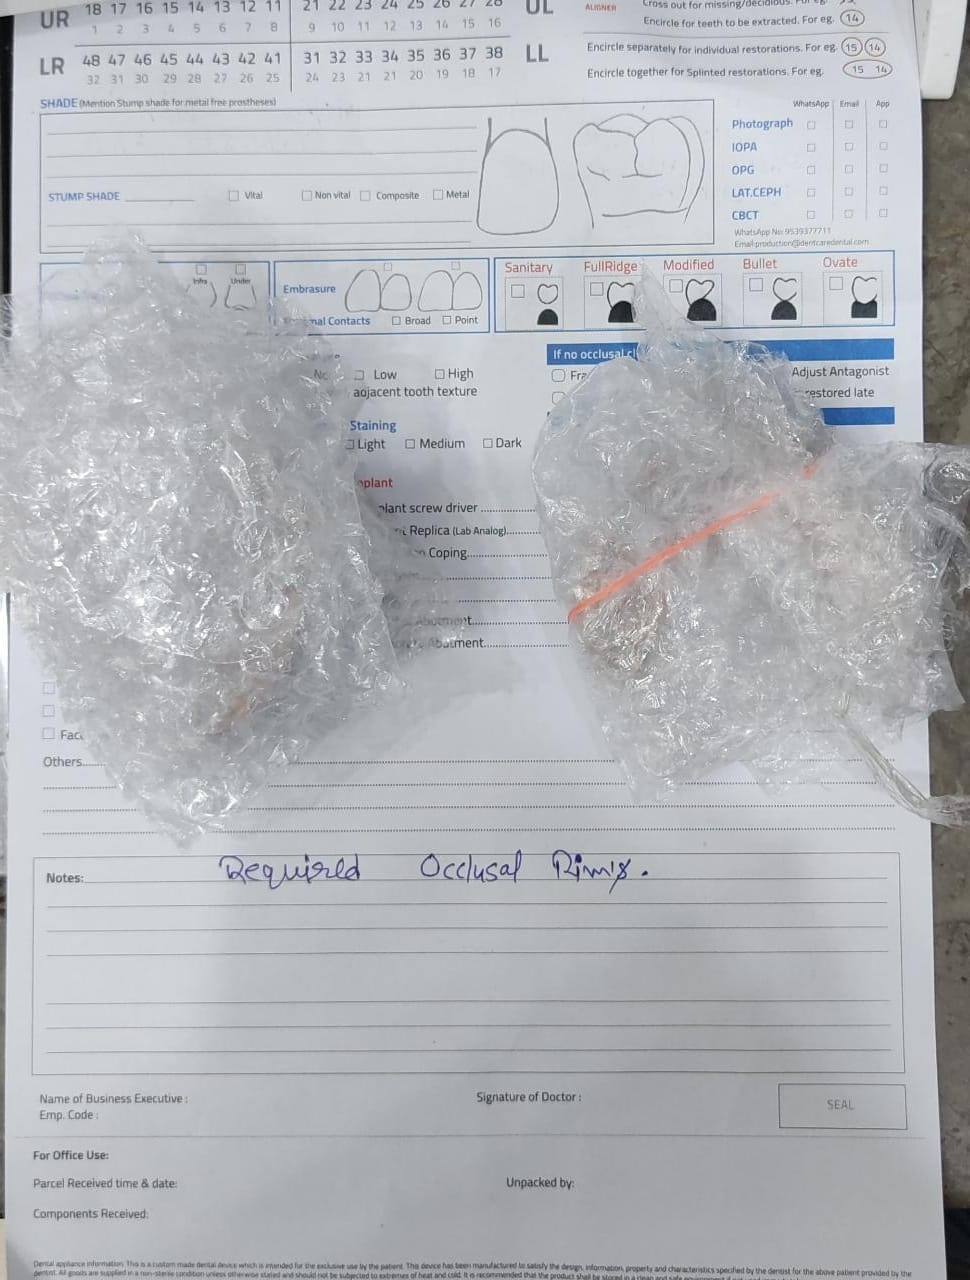 UR 18 17 16 15 14 13 12 11 21 22 23 24 25 26 27 28 UL
1 2 3 4 5 6 7 8 9 10 11 12 13 14 15 16
LR 48 47 46 45 44 43 42 41 31 32 33 34 35 36 37 38 LL
32 31 30 29 28 27 26 25 24 23 21 21 20 19 18 17
ALIGNER
Cross out for missing/decidious.
Encircle for teeth to be extracted. For eg. 14
Encircle separately for individual restorations. For eg. 15 14
Encircle together for Splinted restorations. For eg. 15 14
SHADE (Mention Stump shade for metal free prostheses)
STUMP SHADE Vital Non vital Composite Metal
WhatsApp Email App
Photograph
IOPA
OPG
LAT.CEPH
CBCT
WhatsApp No: 9539377711
Email:production@dentcaredental.com
Infra Under
Embrasure
Contacts Broad Point
Sanitary FullRidge Modified Bullet Ovate
If no occlusal
Low High
adjacent tooth texture
Adjust Antagonist
restored late
Staining
Light Medium Dark
screw driver
Replica (Lab Analog)
Coping
Abutment
Abutment
Others
Notes: Required Occlusal Rim's.
Name of Business Executive :
Emp. Code :
Signature of Doctor :
SEAL
For Office Use:
Parcel Received time & date:
Unpacked by:
Components Received:
Dental appliance information. This is a custom made dental device which is intended for the exclusive use by the patient. This device has been manufactured to satisfy the design, information, property and characteristics specified by the dentist for the above patient provided by the
dentist. All goods are supplied in a non-sterile condition unless otherwise stated and should not be subjected to extremes of heat and cold. It is recommended that the product shall be stored in a clean and safe environment